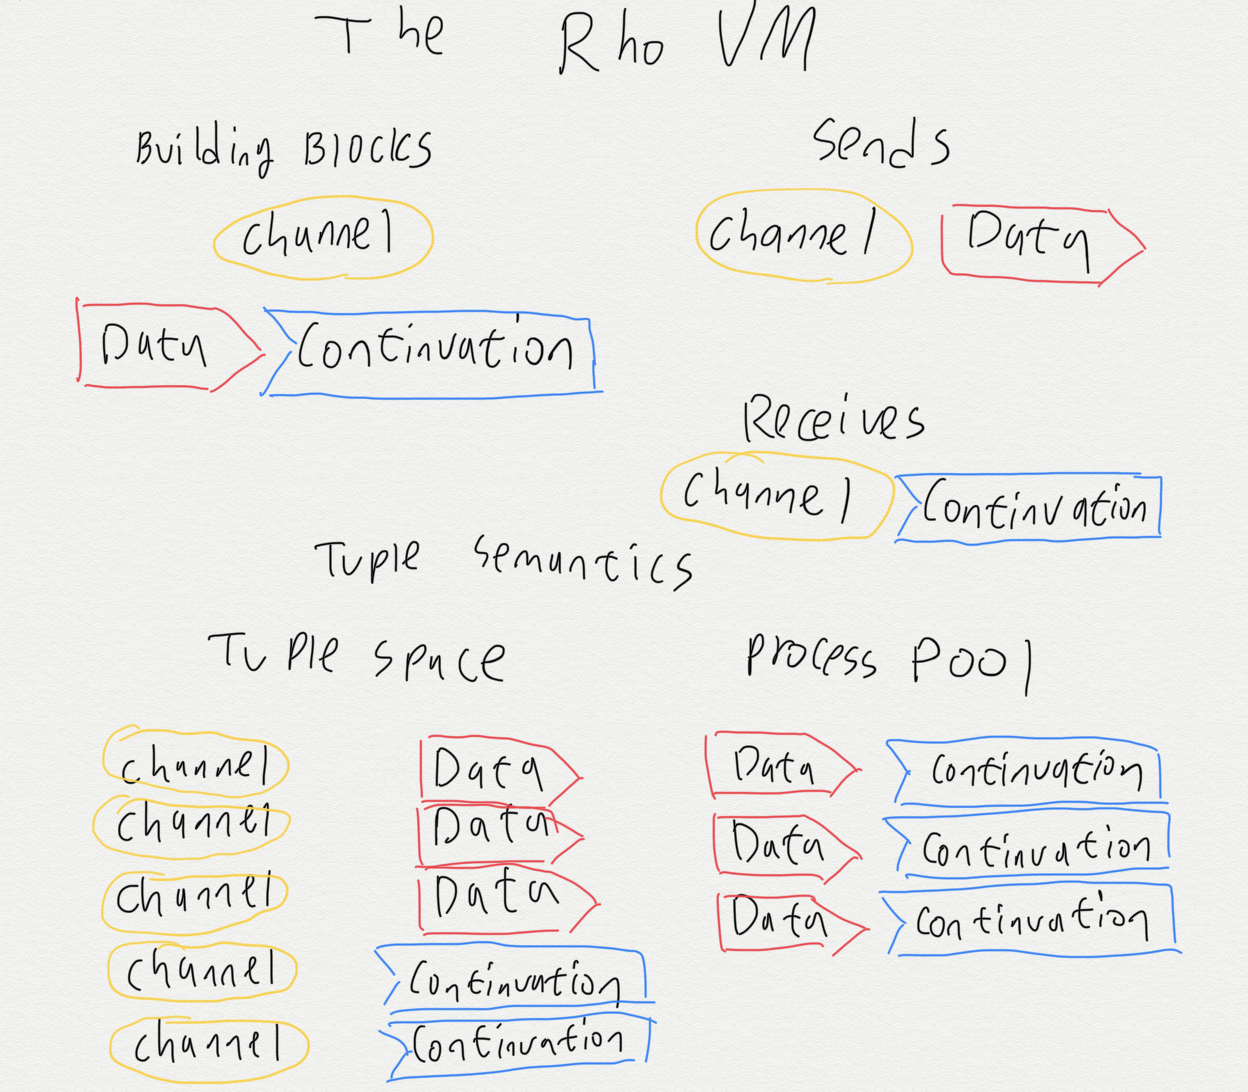 The Rho VM
Building Blocks
Channel
Data Continuation
Sends
Channel Data
Receives
Channel Continuation
Tuple Semantics
Tuple Space
Channel Data
Channel Data
Channel Data
Channel Continuation
Channel Continuation
Process Pool
Data Continuation
Data Continuation
Data Continuation